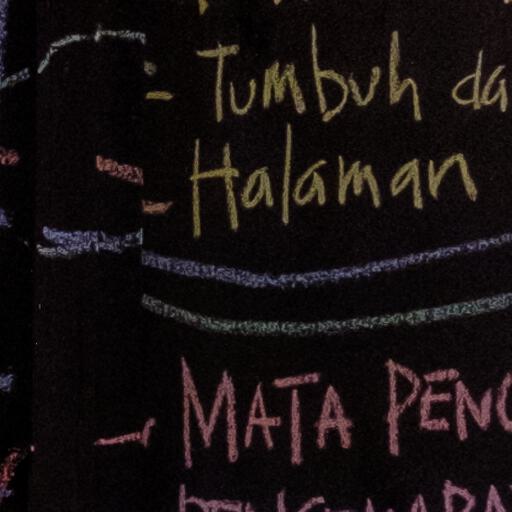 - Tumbuh da
- Halaman
- MATA PENC